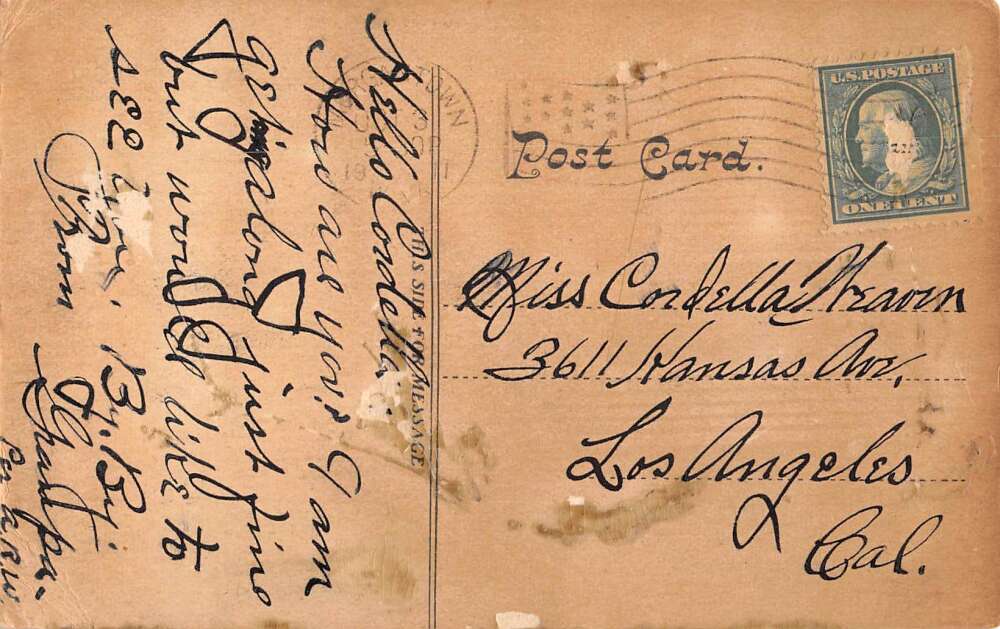 Hello Cordella:
How are you? I am
geting along just fine
but would like to
see you. By. By.
From Grandpa.
Per A.R.W.
THIS SIDE FOR MESSAGE
Post Card.
U.S. POSTAGE
ONE CENT
Miss Cordella Weaver
3611 Kansas Ave,
Los Angeles
Cal.